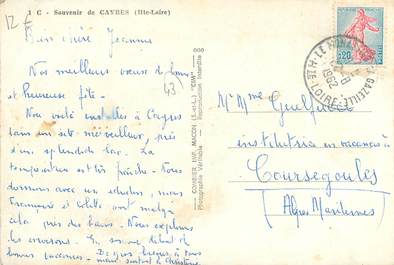 12 F
1 C - Souvenir de CAYRES (Hte-Loire)
Bien chère Jeanne
Nos meilleurs vœux de bonne
et heureuse fête.
43
Nous voilà installés à Cayres
dans un site merveilleux, près
d'un splendide lac. La
température est très fraîche. Nous
dormons avec un édredon, mais
Françoise et Colette ont malgré
cela pris des bains. Nous explorons
les environs. En somme début de
bonnes vacances.
Des gros baisers à tous
COMBIER IMP. MACON (S.-et-L.) "CIM"
Photographie Véritable - Reproduction Interdite
LE MONASTIER GAZEILLE
1962
HTE-LOIRE
0,20
Mme
institutrice en vacances à
Coursegoules
(Alpes Maritimes)